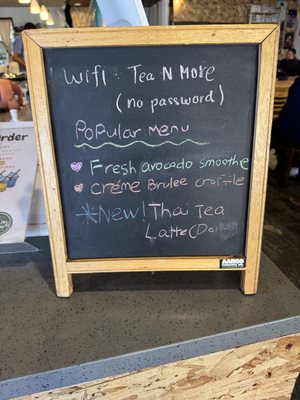 Order
Wifi : Tea N More
(no password)
Popular menu
Fresh avocado smoothe
Crème Brulee croffle
New! Thai Tea
Latte
AARCO